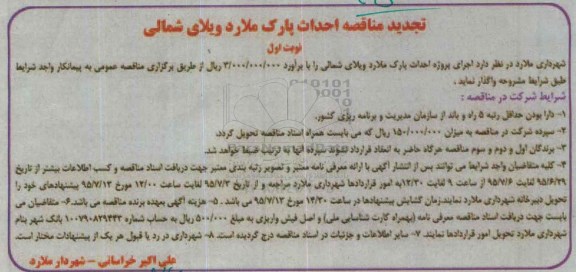 تجدید مناقصه احداث پارک ملارد ویلای شمالی
نوبت اول
شهرداری ملارد در نظر دارد اجرای پروژه احداث پارک ملارد ویلای شمالی را با برآورد ۳/۰۰۰/۰۰۰/۰۰۰ ریال از طریق برگزاری مناقصه عمومی به پیمانکار واجد شرایط
طبق شرایط مشروحه واگذار نماید.
شرایط شرکت در مناقصه:
۱- دارا بودن حداقل رتبه ۵ راه و باند از سازمان مدیریت و برنامه ریزی کشور.
۲- سپرده شرکت در مناقصه به میزان ۱۵۰/۰۰۰/۰۰۰ ریال که می بایست همراه اسناد مناقصه تحویل گردد.
۳- برندگان اول و دوم و سوم مناقصه هرگاه حاضر به انعقاد قرارداد نشوند سپرده آنها به ترتیب ضبط خواهد شد.
۴- کلیه متقاضیان واجد شرایط می توانند پس از انتشار آگهی با ارائه معرفی نامه معتبر و تصویر رتبه بندی معتبر جهت دریافت اسناد مناقصه و کسب اطلاعات بیشتر از تاریخ
۹۵/۶/۲۹ لغایت ۹۵/۷/۶ از ساعت ۹ لغایت ۱۳/۳۰ به امور قراردادها شهرداری ملارد مراجعه و از تاریخ ۹۵/۷/۳ لغایت ساعت ۱۲/۰۰ مورخ ۹۵/۷/۱۳ پیشنهادهای خود را
تحویل دبیرخانه شهرداری ملارد نمایند. زمان گشایش پیشنهادها در ساعت ۱۴/۳۰ مورخ ۹۵/۷/۱۳ می باشد. ۵- هزینه آگهی بعهده برنده مناقصه می باشد. ۶- متقاضیان می
بایست جهت دریافت اسناد مناقصه معرفی نامه (بهمراه کارت شناسایی ملی) و اصل فیش واریزی به مبلغ ۵۰۰/۰۰۰ ریال به حساب شماره ۱۰۰۷۹۰۸۲۹۴۳۳ بانک شهر بنام
شهرداری ملارد تحویل امور قراردادها نمایند. ۷- سایر اطلاعات و جزئیات در اسناد مناقصه درج گردیده است. ۸- شهرداری در رد یا قبول هر یک از پیشنهادات مختار است.
علی اکبر خراسانی - شهردار ملارد